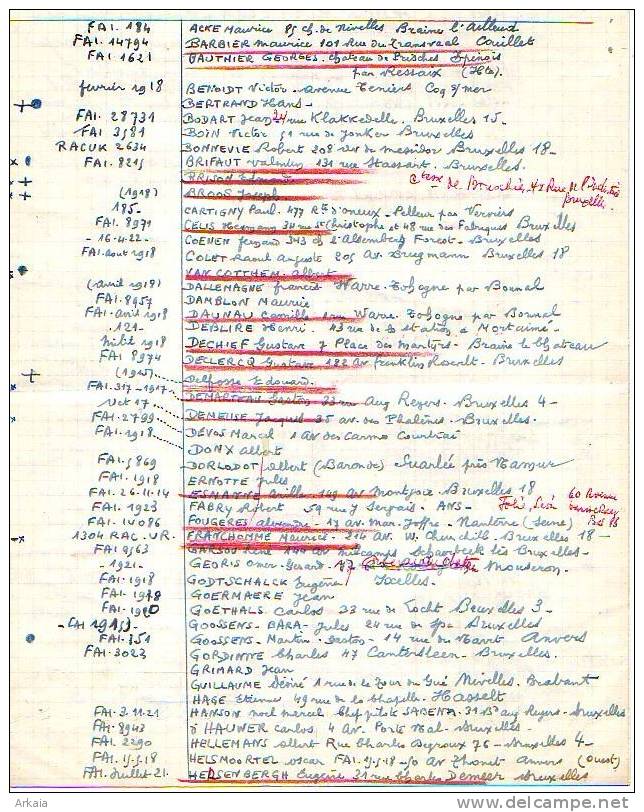 FAI. 184 ACKE Maurice 85 ch. de Nivelles Braine l'Alleud
FAI. 14794 BARBIER Maurice 101 Rue du Transvaal Couillet
FAI 1621 VAUTHIER GEORGES. chateau de
par Ressaix (Hts).
fevrier 1918 BENOIDT Victor. Avenue Teniers Coq s/mer
BERTRAND Hans-
FAI. 28731 BODART Jean 24 rue Klakkedelle. Bruxelles 15-
FAI 3581 BOIN Victor 51 rue de Jonker Bruxelles
RACUK 2634 BONNEVIE Robert 208 av de messidor Bruxelles 18-
FAI. 8215 BRIFAUT Valentin 131 rue Stassart. Bruxelles.
BRISON Edouard
BROOS Joseph
(1918) CARTIGNY Paul. 477 Rte d'oneux - Pelleur par Verviers
185- CELIS Hermann 34 rue St Christophe et 48 rue des Fabriques Bruxelles
FAI. 8971 COENEN fernand 343 ch d'Alsemberg Forest. Bruxelles
-16-4.22- COLET Raoul Auguste 205 Av. Brugmann Bruxelles 18
FAI. aout 1918
VAN COTTHEM. albert
(avril 1918) DALLEMAGNE francis Warre. Tohogne par Bomal
FAI. 8957 DAMBLON Maurice
FAI. avril 1918 DAUNAU Camille rue Warre. Tohogne par Bomal
121- DEBLIRE Henri. 43 rue de la station à Mortainé-
FAI 8974 DECHIEF Gustave 7 Place des Martyrs- Braine le Chateau
DECLERCQ Gustave 182 Av. franklin Roosvelt- Bruxelles
(1915) Delfosse Edouard.
FAI. 317-1917- DEMARTEAU Gaston 33 rue Aug Reyers. Bruxelles 4-
Oct 17 DEMEUSE Jacques 35 av. des Phalènes. Bruxelles.
FAI. 2799 DEVOS Marcel 1 Av des Carmes Courtrai
FAI. 1918 DONY albert
FAI. 5869 DORLODOT albert (Baron de) Suarlée près Namur
FAI. 1918 ERNOTTE Jules
FAI. 26-11-14 149 av. Montjoie. Bruxelles 18
FAI. 1923 FABRY Robert 59 rue J Servais. ANS-
FAI. 14086 FOUGERES 13 av. Mar. Joffre. Nanterre (Seine)
1304 RAC. UR. FRANCHOMME Maurice. 214 Av. W. Churchill. Bruxelles 18-
FAI 9563 GARSOU René 144 av milcamps Schaerbeek les Bruxelles-
-1921- GEORIS Omer-Gerard. 47 Mouscron.
FAI. 1918 GODTSCHALCK Eugène Ixelles.
FAI-1918 GOERMAERE Jean
FAI-1920 GOETHALS Carlos 33 rue de Tocht Bruxelles 3-
GOOSSENS-BARA-Jules 24 rue de Spa Bruxelles
FAI. 351 GOOSSENS- Martin-Gaston- 14 rue du Navet Anvers
FAI. 3023 GORDINNE Charles 47 Cantersteen- Bruxelles.
GRIMARD Jean
GUILLAUME Désiré 1 rue de la Tour du Gué Nivelles. Brabant
HAGE Etienne 49 rue de la chapelle. Hasselt
FAI. 3.11.21 HANSON noel marcel Chef pilote SABENA. 31 Bd aug Reyers- Bruxelles
FAI. 8943 d'HAUWER carlos 4 Av. Porte Hal- Bruxelles-
FAI. 2290 HELLEMANS albert Rue Charles Degroux 76- Bruxelles 4-
FAI- 15.5.18 HELSMOORTEL oscar FAI. 15.5.18 Anvers (Ouest)
FAI. Juillet 21. HERSENBERGH Eugène 31 rue Charles Demeer Bruxelles
Arkaia
www.delcampe.net